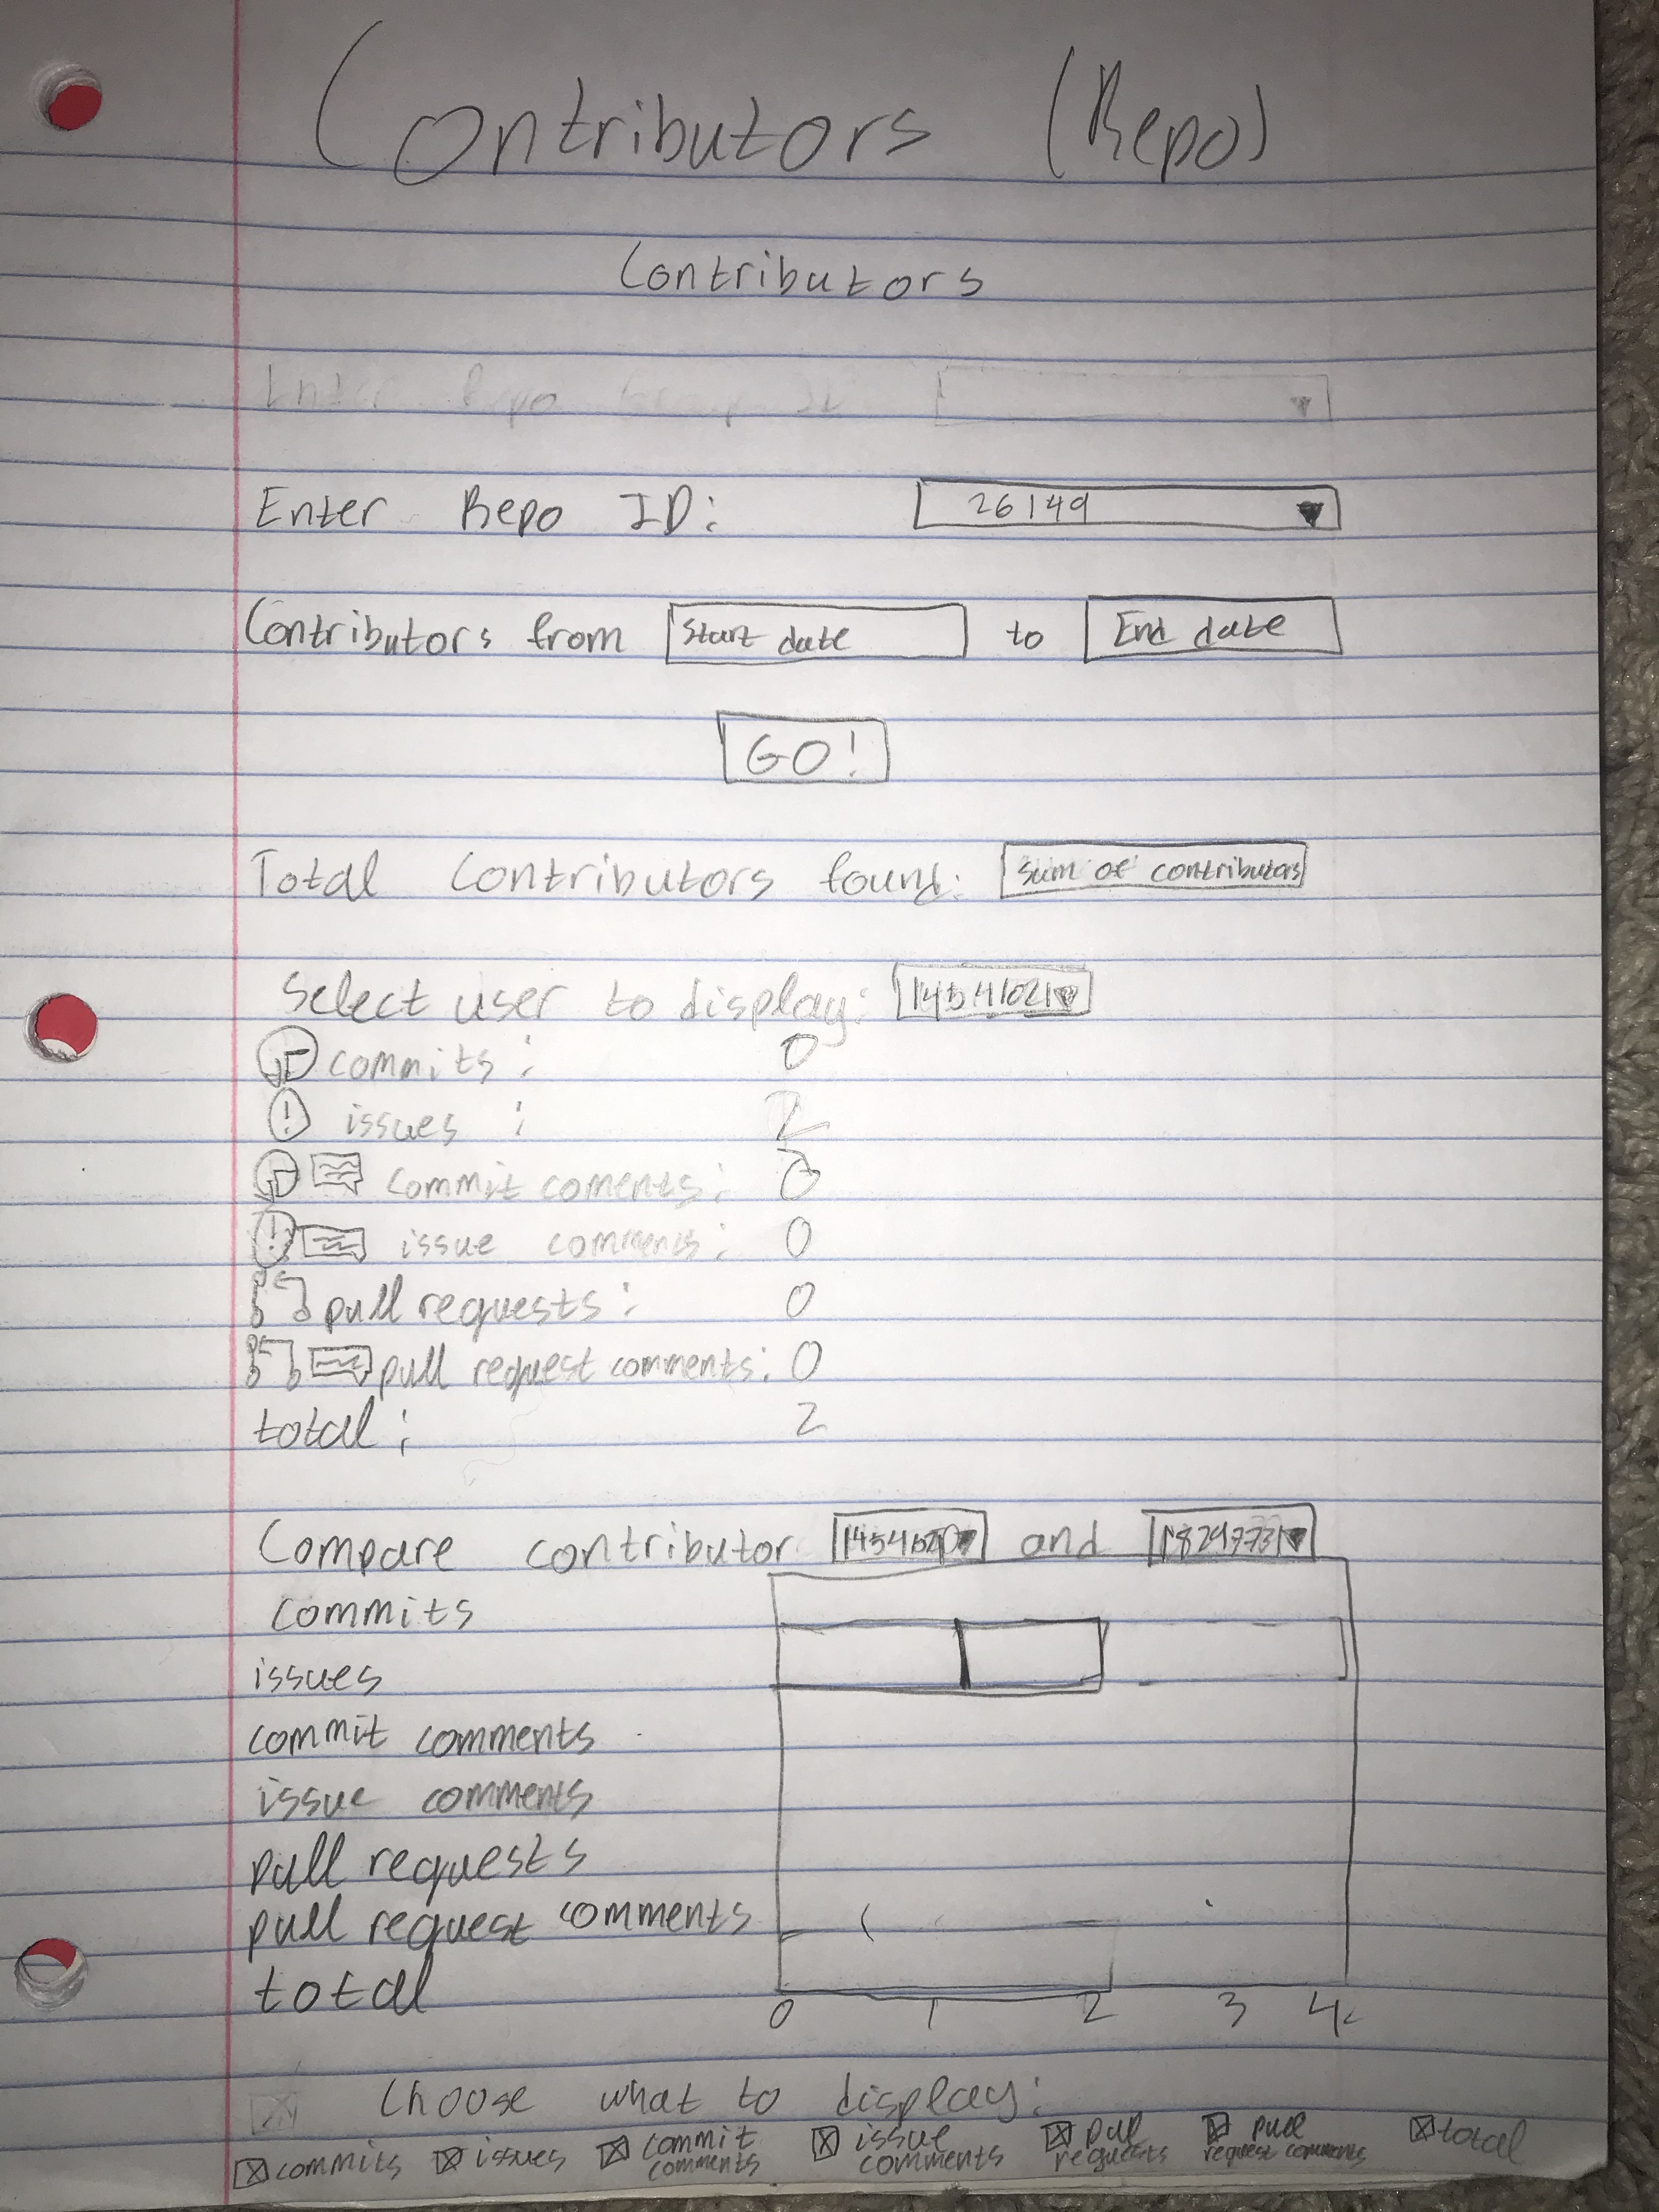 Contributors (Repo)
Contributors
Enter Repo Group ID
Enter Repo ID: 26149
Contributors from Start date to End date
GO!
Total Contributors found: Sum of contributors
Select user to display:
commits: 0
issues: 2
commit coments: 0
issue comments: 0
pull requests: 0
pull request comments: 0
total: 2
Compare contributor and
commits
issues
commit comments
issue comments
pull requests
pull request comments
total
0 1 2 3 4
Choose what to display:
commits issues commit comments issue comments pull requests pull request comments total